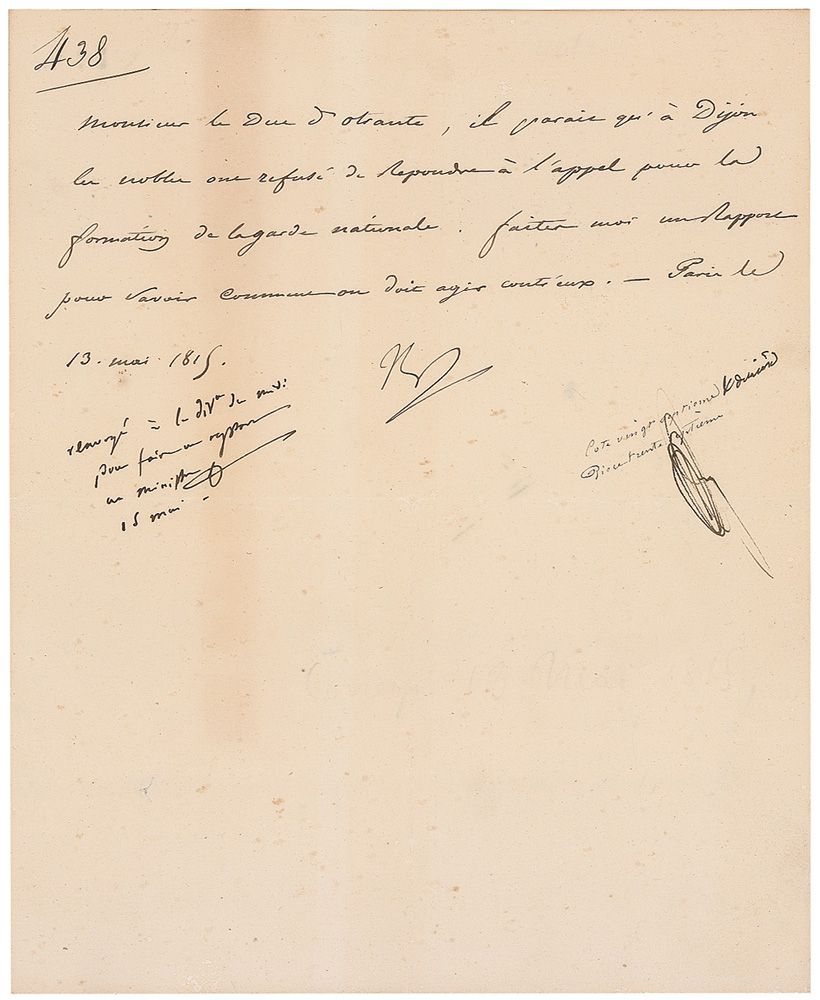 438
Monsieur le Duc d'otrante, il parait qu'à Dijon
les nobles ont refusé de Repondre à l'appel pour la
formation de la garde nationale. faites moi un Rapport
pour Savoir comment on doit agir contr'eux. — Paris le
13. mai 1815.
renvoyé à la divon du midi
pour faire un rapport
au ministre
15 mai -
Cote vingt septieme
Piece trente septième